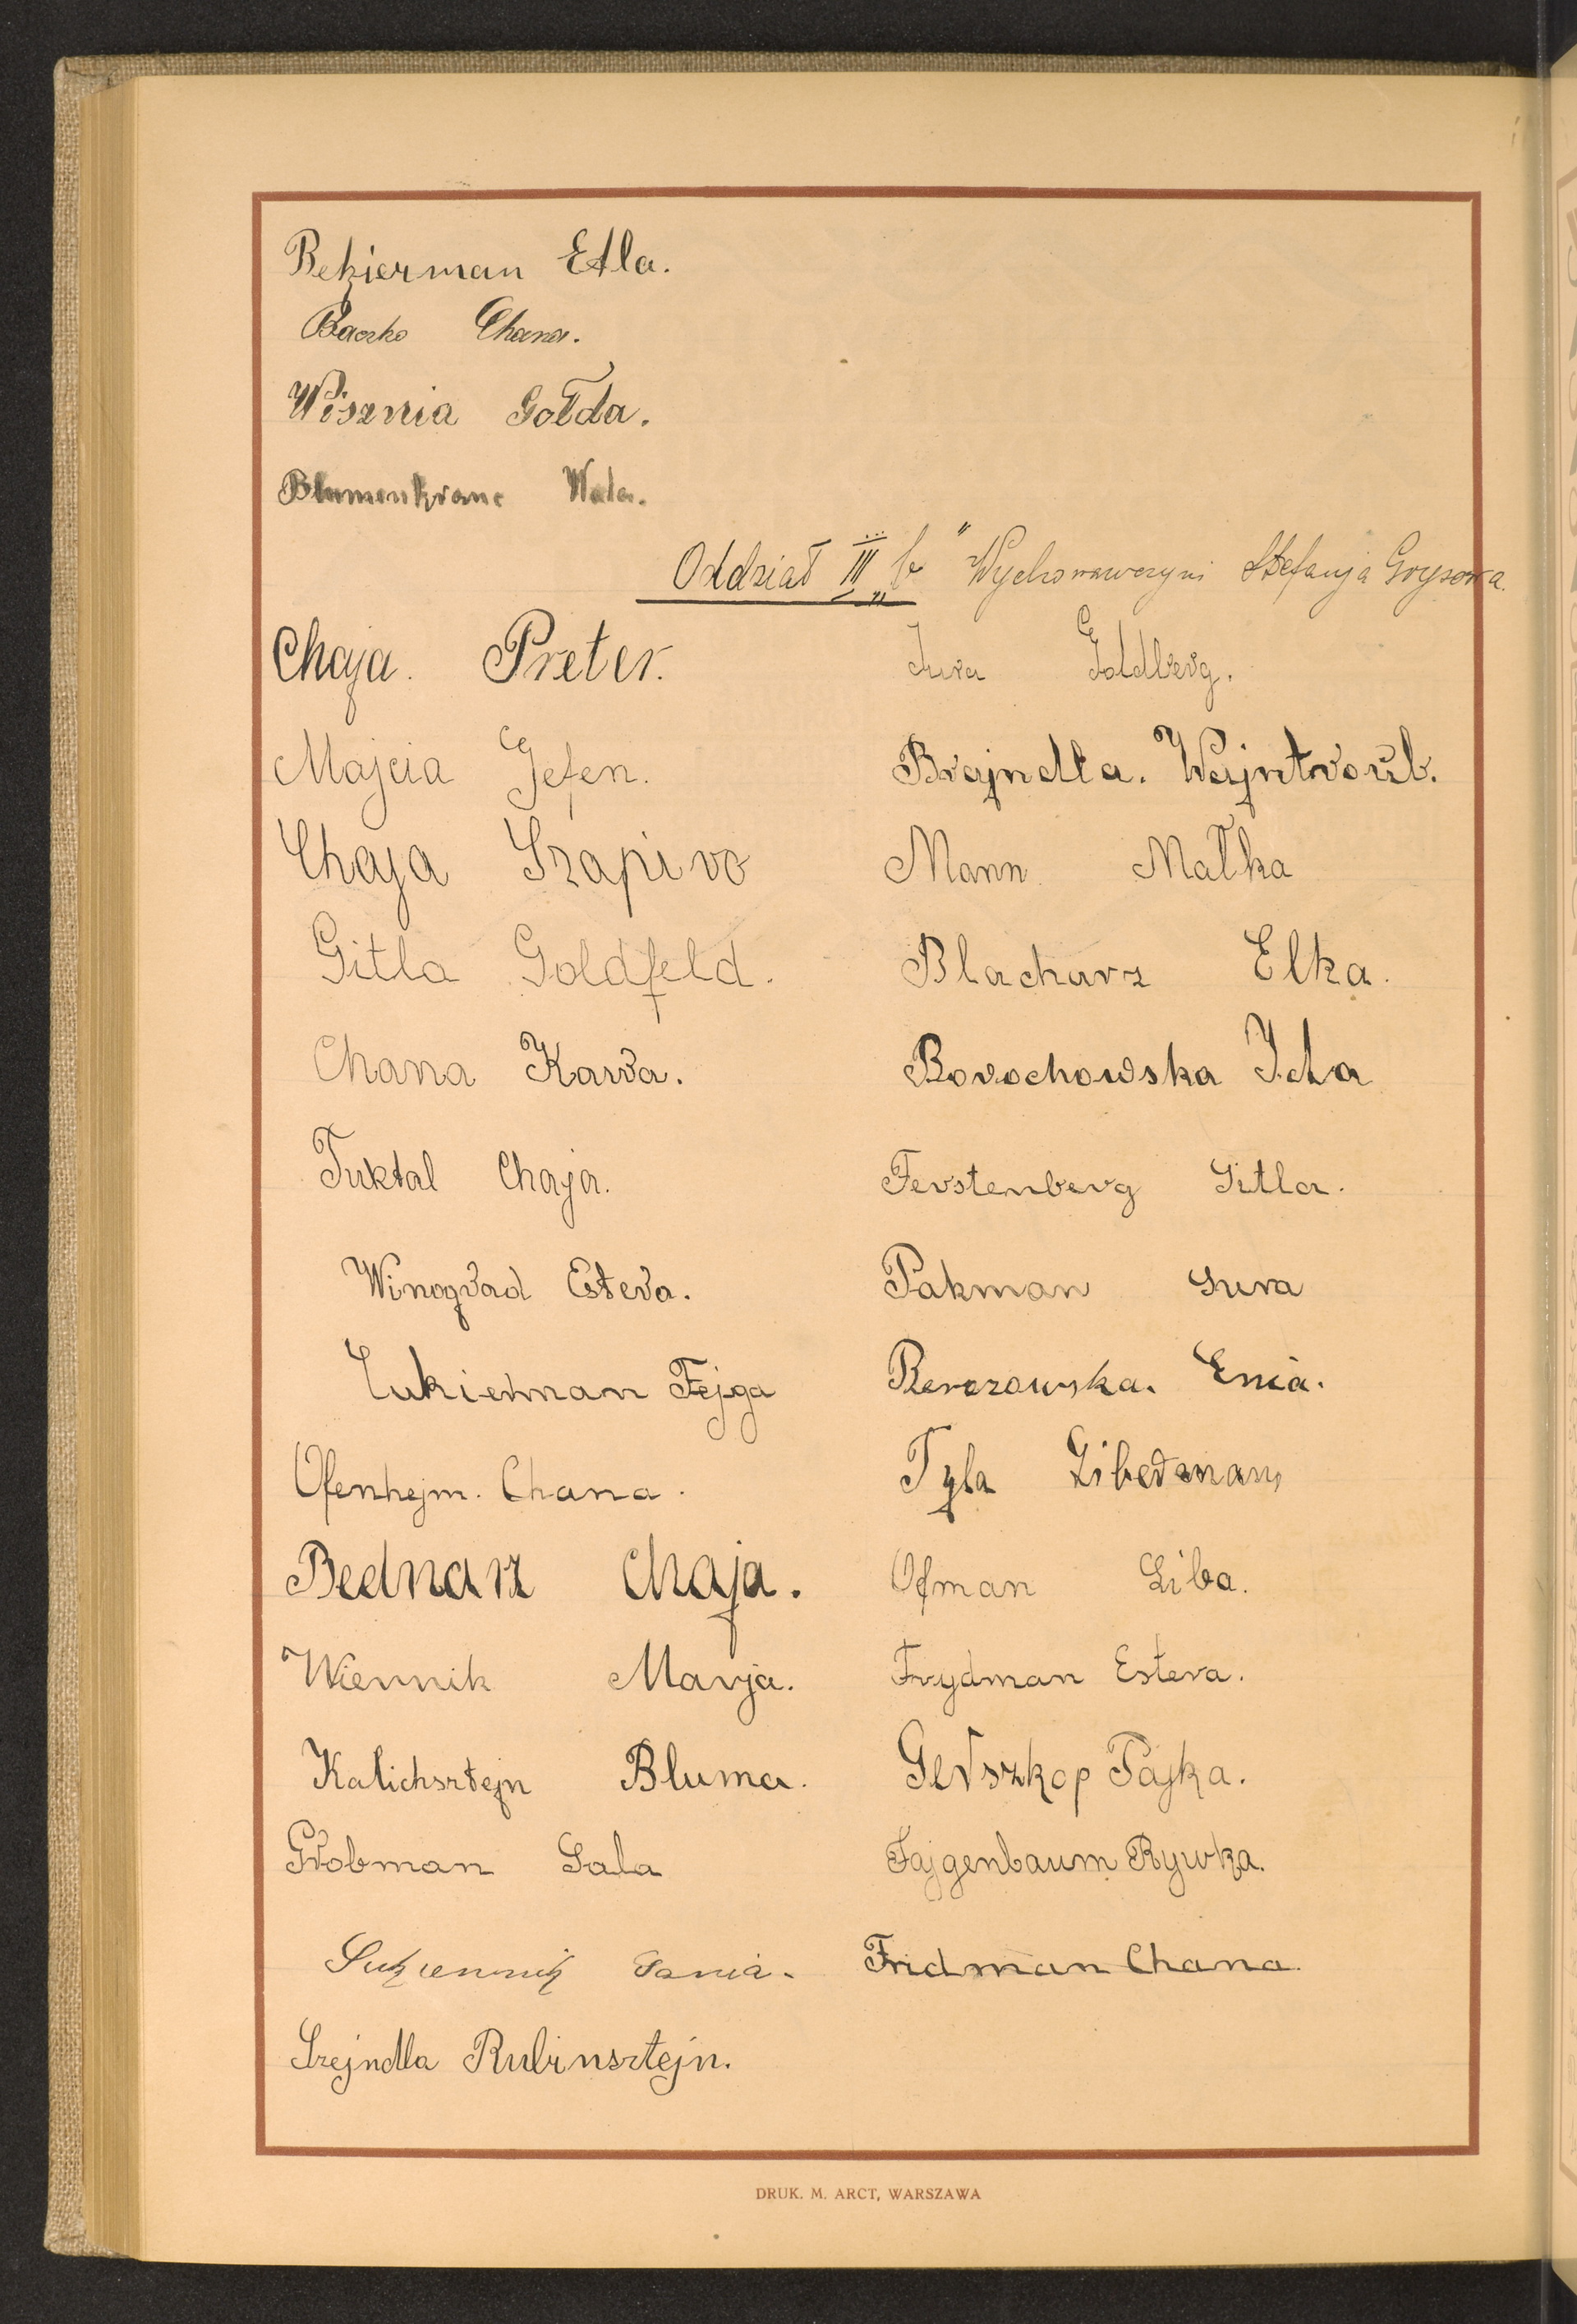 Bekierman Etla.
Baczko Chana.
Wisznia Gołda.
Blumenkranc Wala.
Oddział III „b" Wychowawczyni Stefanja Grysowa.
Chaja. Preter.
Majcia Gefen.
Chaja Szapiro
Gitla Goldfeld.
Chana Karra.
Tuktal Chaja.
Winograd Estera.
Cukierman Fejga
Ofenhejm. Chana.
Bednarz Chaja.
Wiernik Marja.
Kalichsztejn Bluma.
Grobman Sala
Sukiennik Sonia.
Szejndla Rubinsztejn.
Sura Goldberg.
Brajndla. Wajntroub.
Mann Małka
Blacharz Elka.
Borochowska Ida
Ferstenberg Gitla.
Pakman Sura
Berezowska. Enia.
Tyla Liberman,
Ofman Liba.
Frydman Estera.
Gerszkop Fajka.
Fajgenbaum Rywka.
Fridman Chana.
DRUK. M. ARCT, WARSZAWA